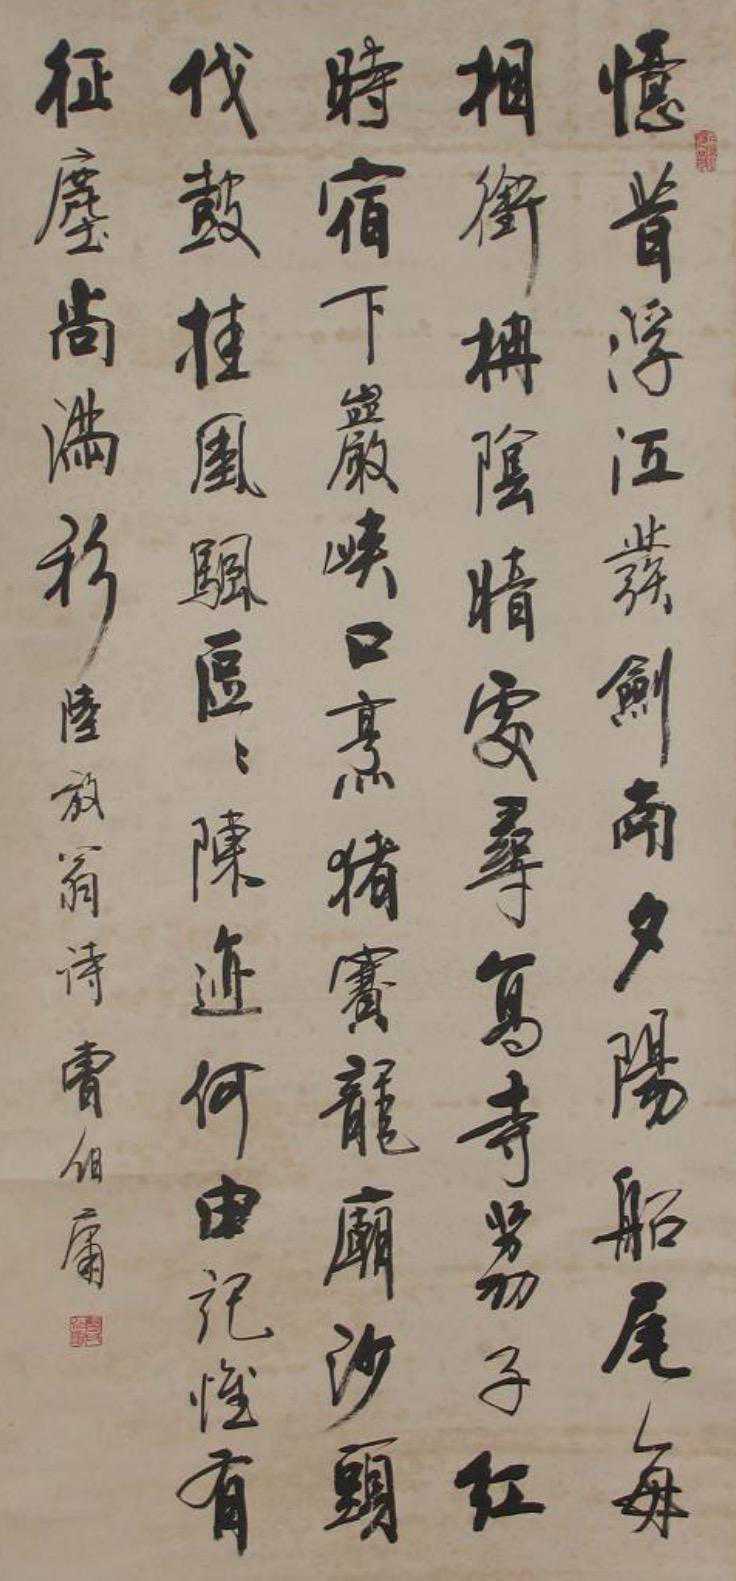 憶昔浮江發劍南夕陽船尾每
相銜柟陰暗處尋高寺荔子紅
時宿下巖峽口烹猪賽龍廟沙頭
伐鼓挂風颿區〻陳迹何由記惟有
征塵尚滿衫 陸放翁詩 曹伯庸